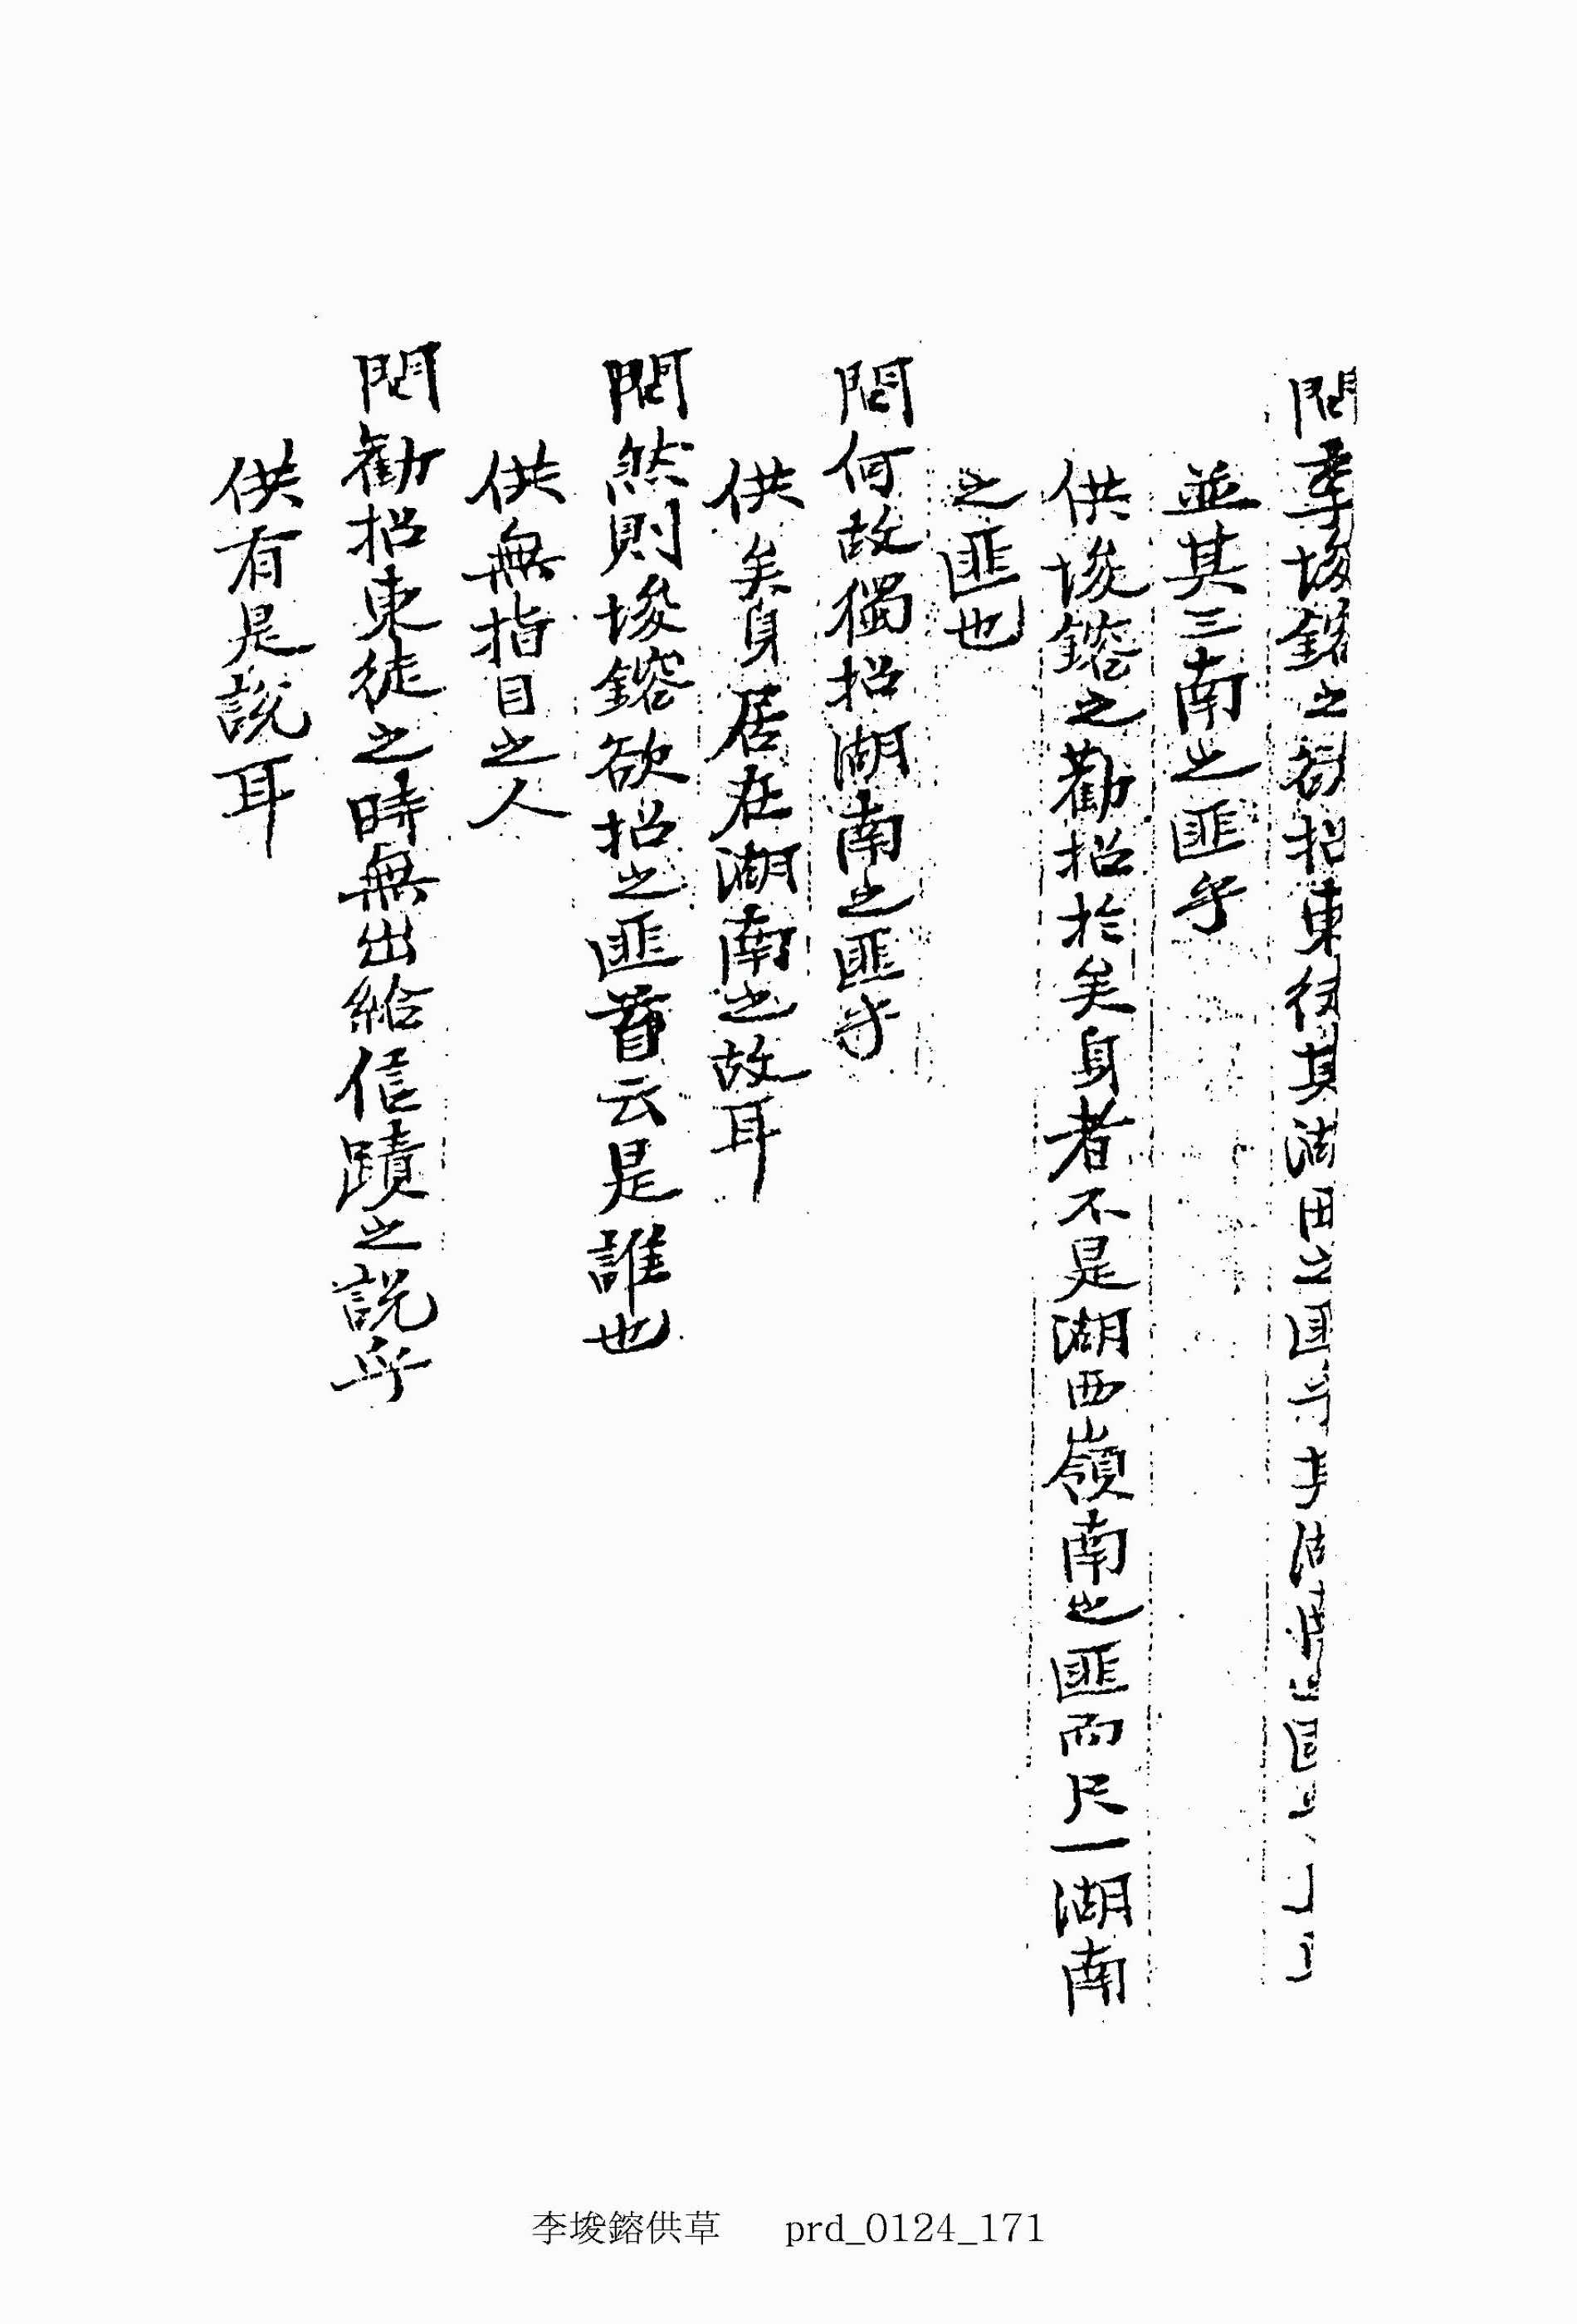 問李埈鎔之欲招東徒其湖西之匪乎
並其三南之匪乎
供埈鎔之勸招於矣身者不是湖西嶺南之匪而只一湖南
之匪也
問何故獨招湖南之匪乎
供矣身居在湖南之故耳
問然則埈鎔欲招之匪首云是誰也
供無指目之人
問勸招東徒之時無出給信蹟之説乎
供有是説耳
李埈鎔供草 prd_0124_171